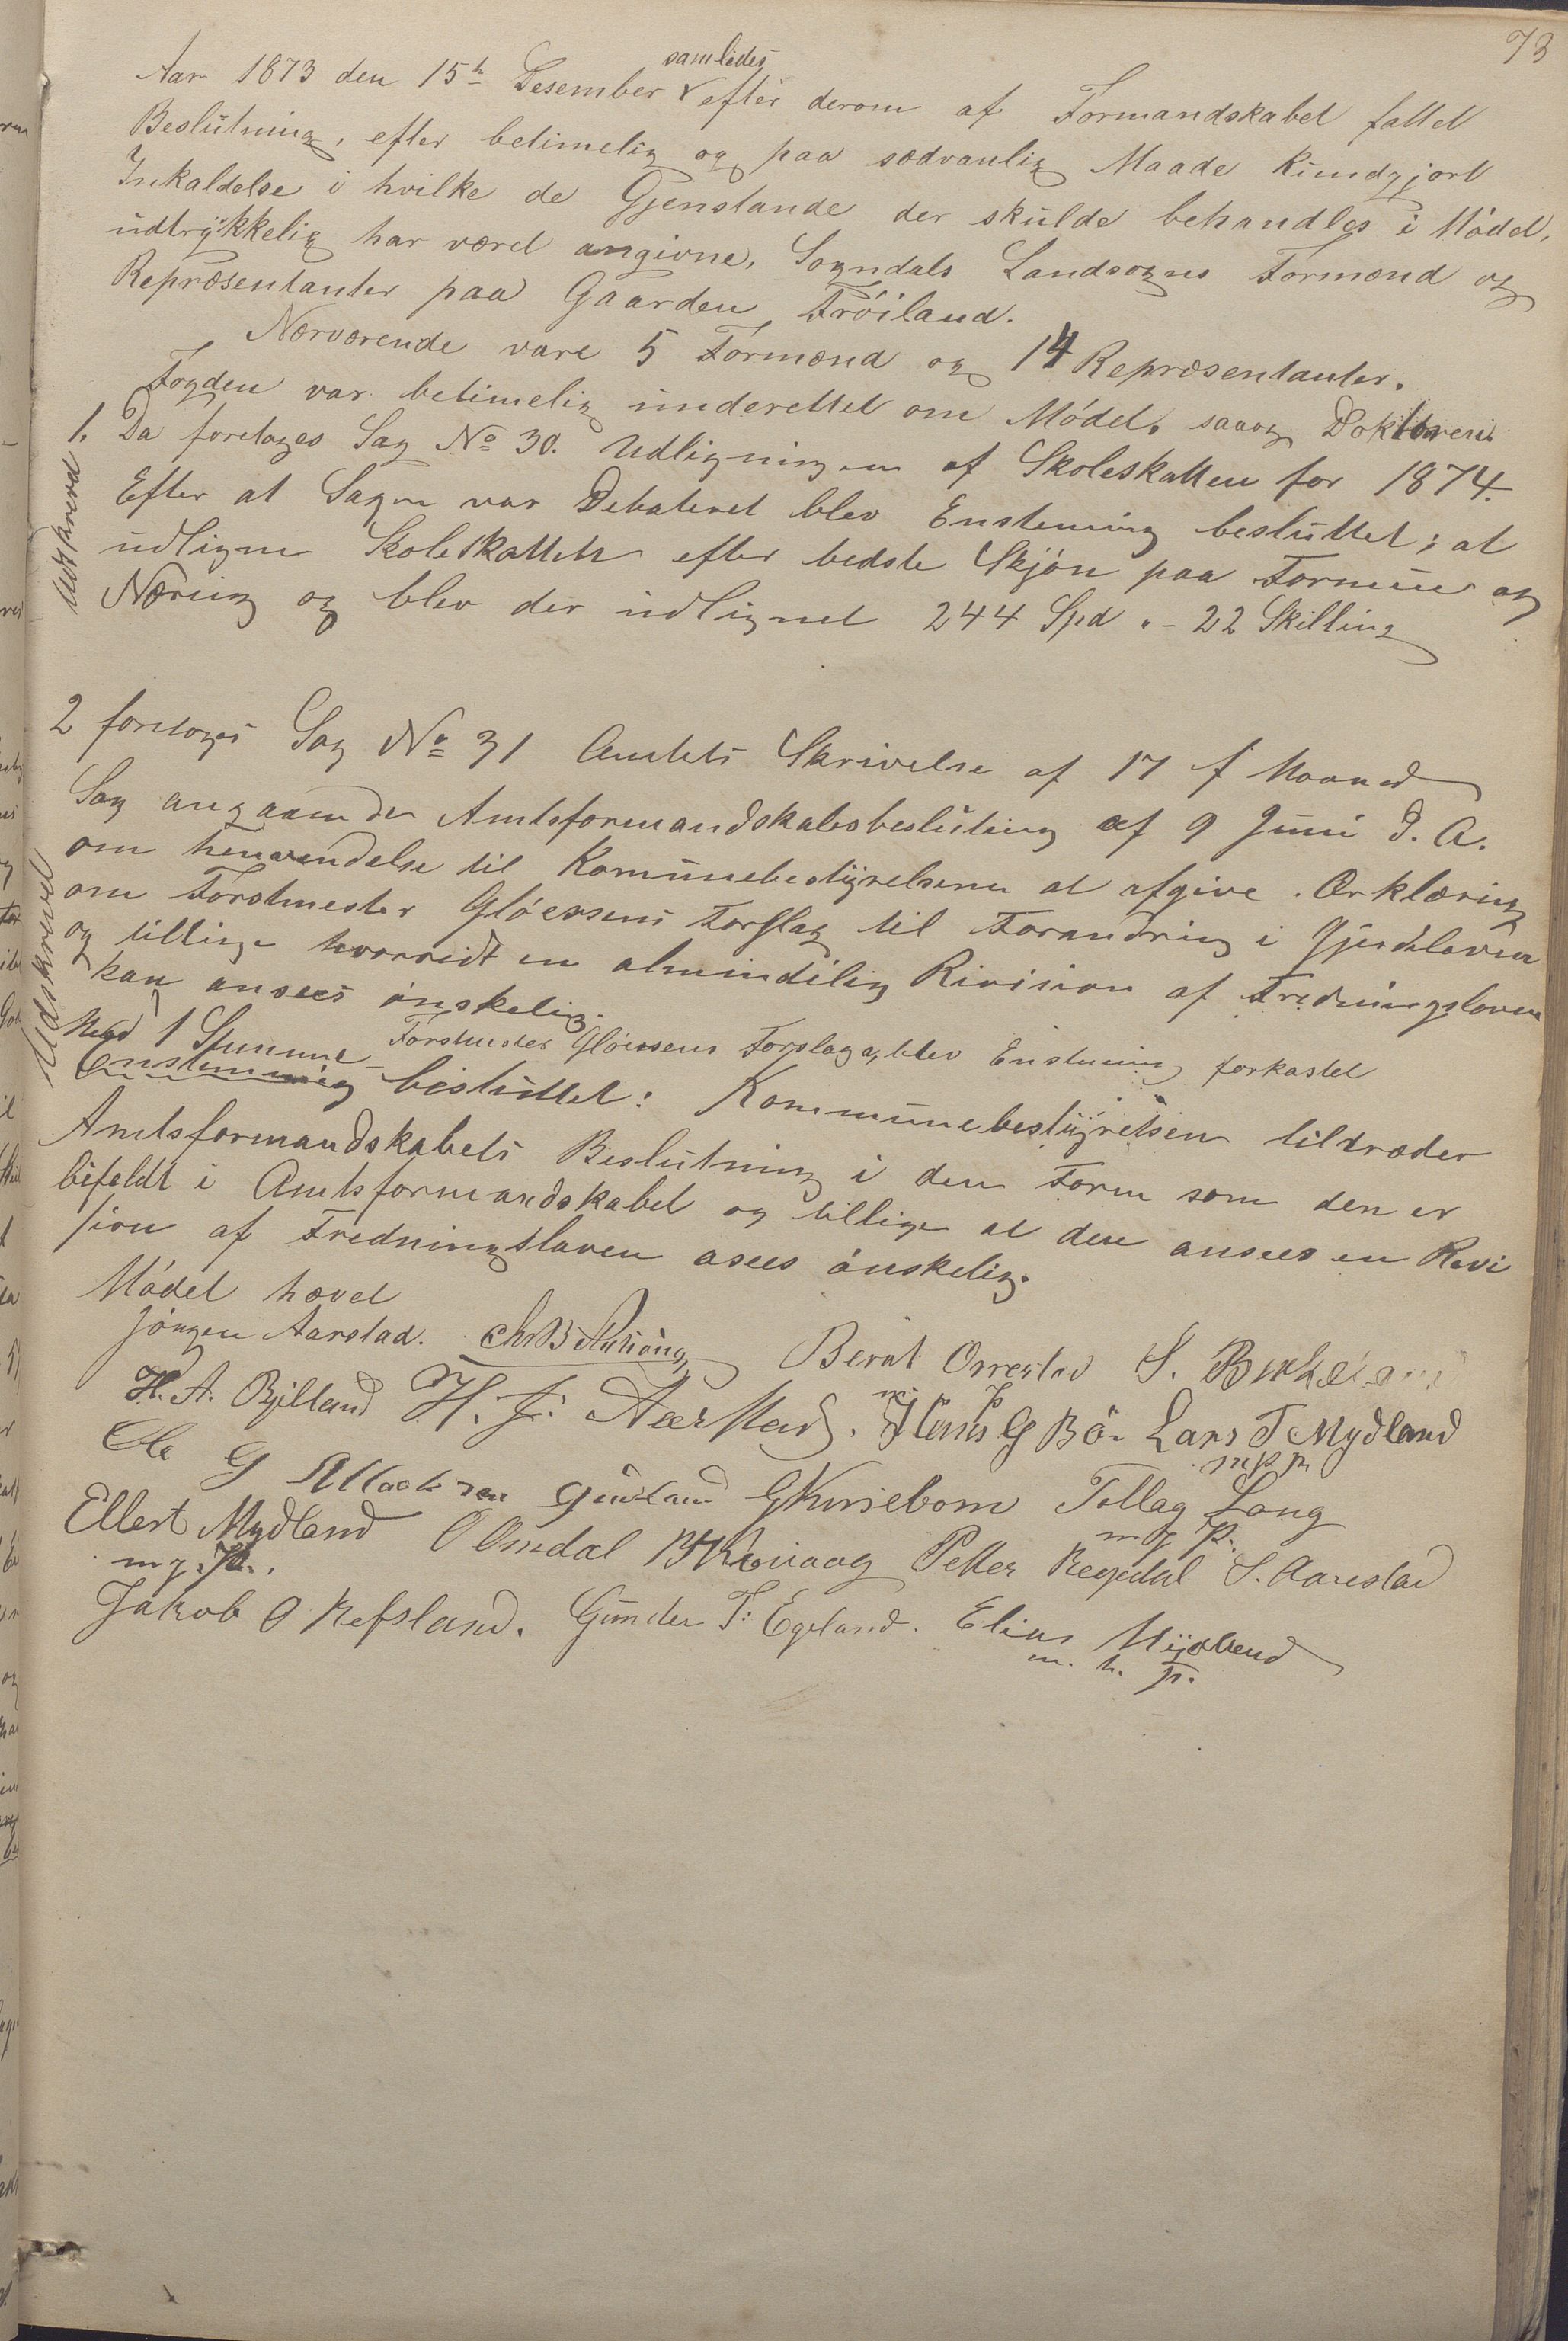 73
Aar 1873 den 15h Desember samledes efter derom af Formandskabet fattet
Beslutning, efter betimelig og paa sædvanlig Maade kundgjort
Inkaldelse i hvilke de Gjenstande der skulde behandles i Mödet,
udtrykkelig har været angivne, Sogndals Landsogns Formænd og
Repræsentanter paa Gaarden Fröiland.
Nærværende vare 5 Formænd og 14 Repræsentanter.
Fogden var betimelig underettet om Mödet, saaog Doktoren
1. Da foretoges Sag No 30. Udligningen af Skoleskatten for 1874.
Udskrevet
Efter at Sagen var Debateret blev Enstemig besluttet; at
udligne Skoleskatten efter bedste Skjön paa Formue og
Næring og blev der udlignet 244 Spd " - 22 Skilling
2 foretoges Sag No 31 Amtets Skrivelse af 17 f Maaned
Udskrevet
Sag angaaende Amtsformandskabsbesluting af 9 Juni d. A.
om henvendelse til Komunebestyrelserne at afgive Ærklæring
om Forstmester Glöersens Forslag til Forandring i Gjerdeloven
og tillige hvorvidt en almindelig Rivision af Fredningsloven
kan ansees önskelig.
Forstmester Glöersens Forslag, blev Enstemig forkastet
Med 1 Stemme
Enstemmig besluttet: Kommunebestyrelsen tiltræder
Amtsformandskabets Beslutning i den Form som den er
bifaldt i Amtsformandskabet og tillige at den ansees en Revi
sion af Fredningsloven asees önskelig.
Mödet hævet
Jörgen Aarstad. Berat Orrestad S. Birkeland
H. A. Bjelland H. J. Aarstad. Hans G Bö Lars T Mydland
m p m p p
Ole G Gursebom Tollag Long
m g P.
Ellert Mydland O Omdal Petter Regedal S. Aarestad
m g. P.
Jakob O Refsland. Gunder T: Egeland. Elias Mydland
m. h. P.